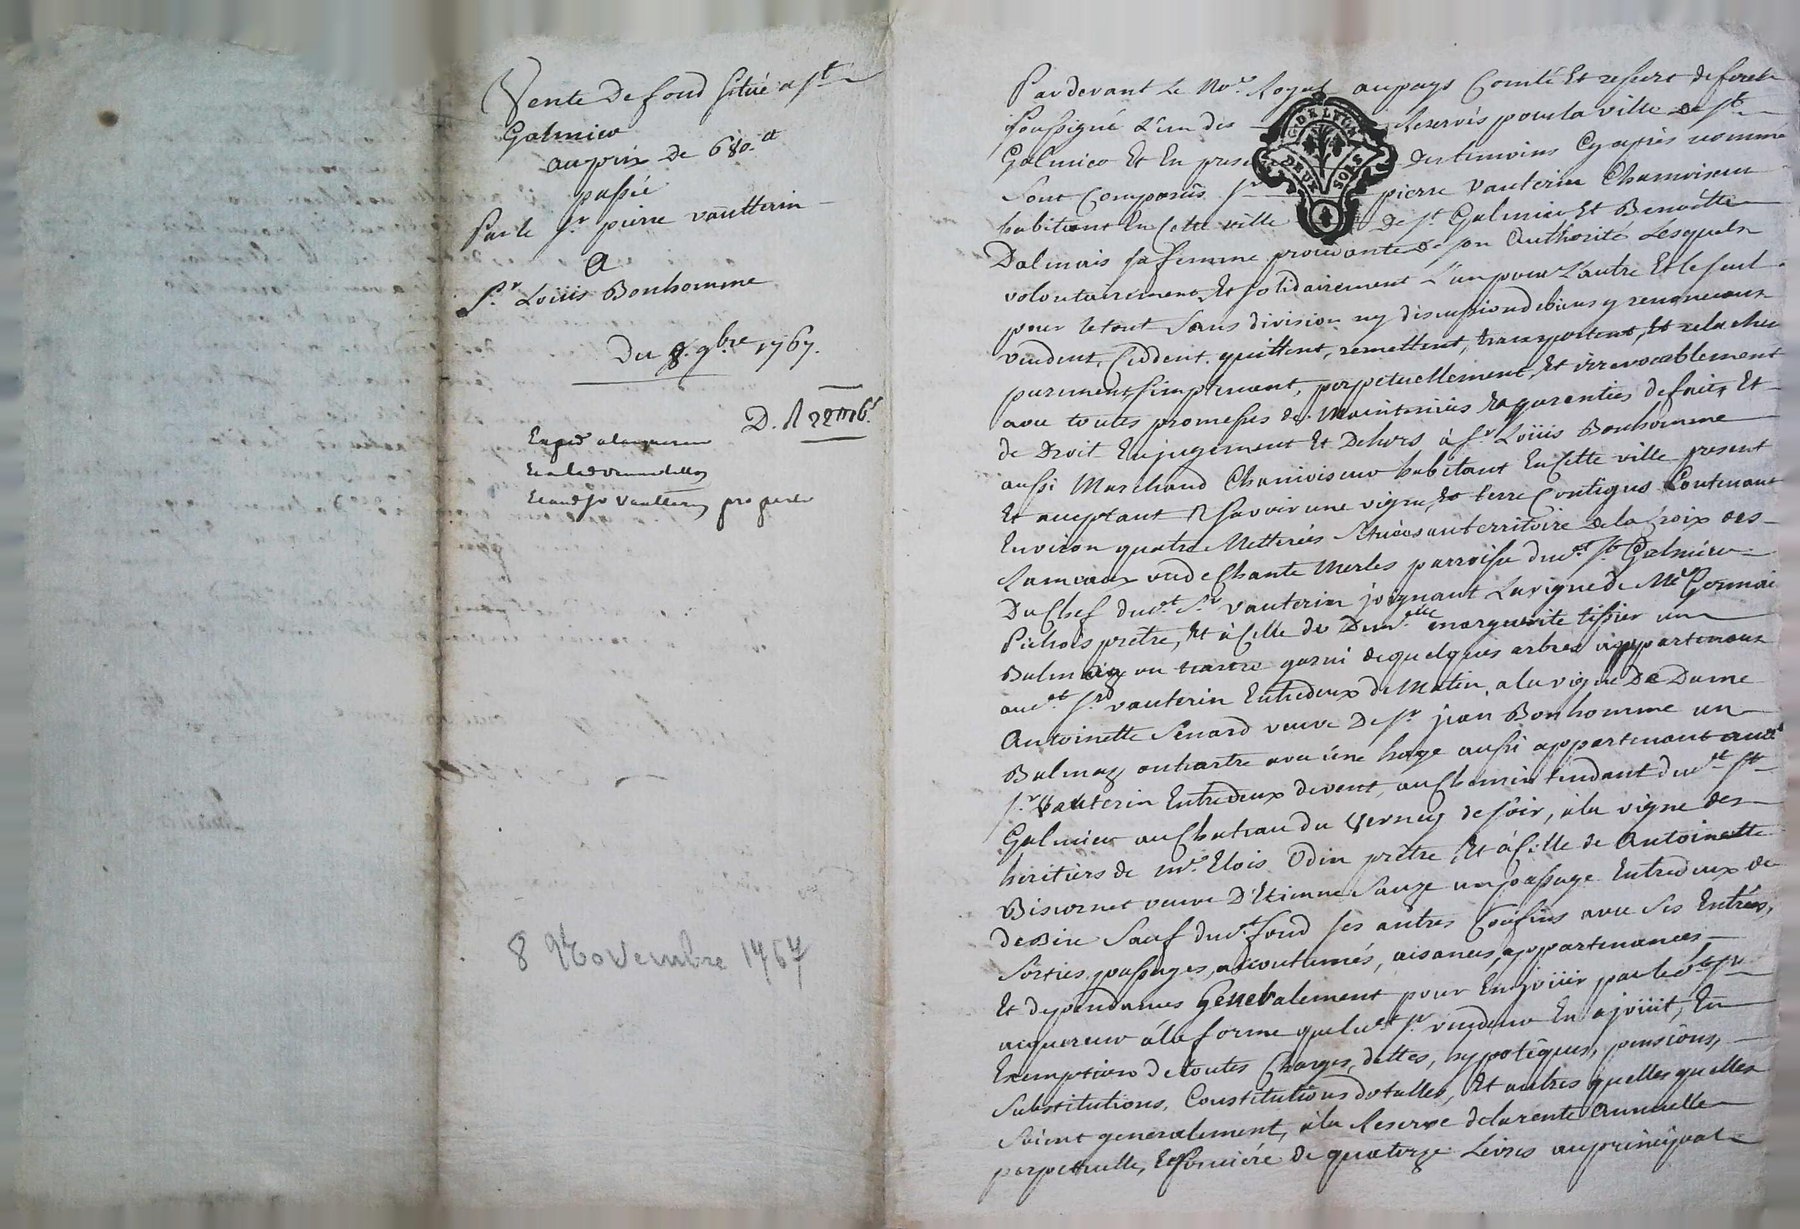 Vente De fond situé a st
Galmier
au prix de 680.tt
passée
Par le sr. pierre vautterin
A
sr. Loüis Bonhomme
Du 8. 9bre 1767.
D.
8 Novembre 1767
Pardevant Le Nore. Royal au pays Comté Et ressort de forest
soussigné L'un des Reservés pour la ville de st
Galmier Et En presence Des temoins Cy après nommé
Sont Comparus sr pierre vauterin Chamoiseur
habitant En Cette ville De st Galmier Et Benoitte
Dalmais sa femme procedante de son Authorité Lesquels
volontairement, Et solidairement L'un pour L'autre Et le seul
pour le tout Sans division ny discussion de biens y renonceant
vendent, Ceddent, quittent, remettent, transportent, Et relachent
purement, simplement, perpetuellement, Et irrevocablement
avec toutes promesses de Maintenües Et garenties de fait, Et
de Droit En jugement Et Dehors à sr Loüis Bonhomme
aussi Marchand Chamoiseur habitant En Cette ville present
Et acceptant Sçavoir une vigne, Et terre Contigues Contenant
Environ quatre Metterées Situées au territoire de la Croix des
Rameaux ou de Chante Merles parroisse dudt. st Galmier
Du Chef dudt. sr vauterin joignant La vigne de Me
Pichois prêtre, Et à Celle de Demlle marguerite tissier un
Balmay ou tertre garni de quelques arbres appartenant
audt sr vauterin Entredeux de Matin, a la vigne De Dame
Antoinette Senard veuve De sr jean Bonhomme un
Balmay ou tertre avec une haye aussi appartenant audt
sr Vauterin Entredeux de vent, au Chemin tendant dudt st
Galmier au Chateau du Verney de soir, à la vigne des
heritiers de mre. Elois Odin prêtre, Et à Celle de Antoinette
veuve D'Etienne Sauze un passage Entredeux de
de Bize Sauf dudt. fond ses autres Confins avec ses Entrées,
Sorties, passages, accoutumés, aisances, appartenances
Et dependances Generalement pour En joüir par ledt. sr
acquereur à la forme que ledt sr vendeur En a joüit, En
Exemption de toutes Charges, dettes, hypotêques, pensions,
Substitutions, Constitutions dotalles, Et autres quelles quelles
soient generalement, à la Reserve de la rente Annuelle
perpetuelle, Et fonciére de quatorze Livres au principal